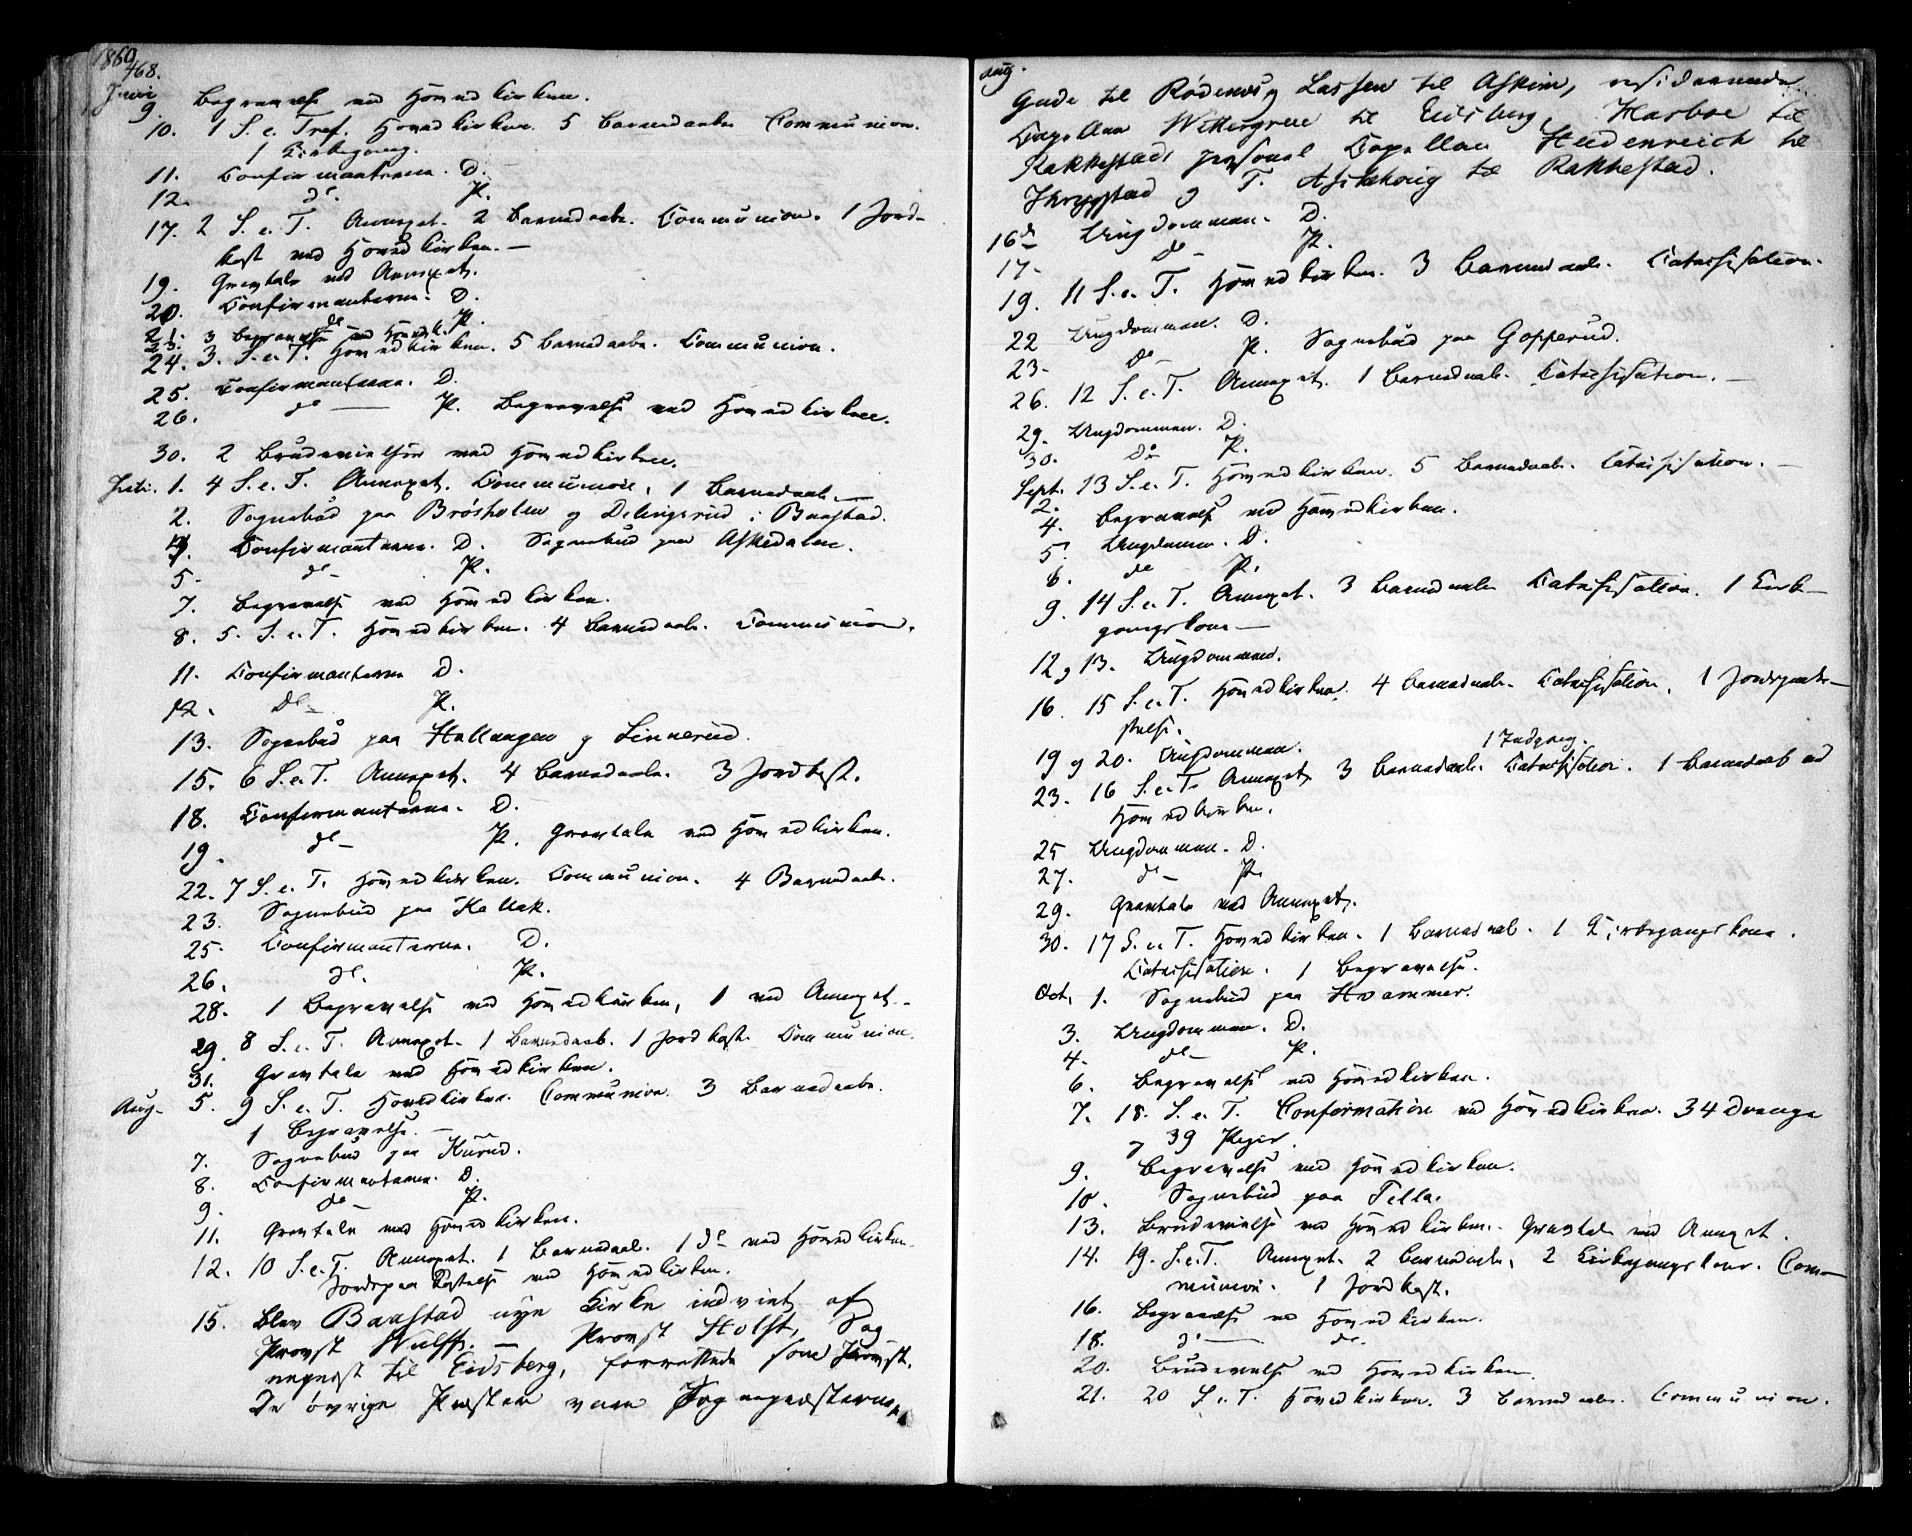 1860
468.
Juni
9. Begravelse ved Hovedkirken.
10. 1 S. e. Tref. Hovedkirken. 5 Barnedaabe Communion.
1 Kirkegang.
11. Confirmanterne. D.
12. do. P.
17. 2 S. e. T. Annexet. 2 Barnedaabe. Communion. 1 Jord-
kast ved Hovedkirken. —
19. Gravtale ved Annexet.
20. Confirmanterne. D.
21. do P.
23. 3 Begravelse ved Hovedk.
24. 3. S. e. T. Hovedkirken. 5 Barnedaabe. Communion.
25. Confirmanterne. D.
26. do — P. Begravelse ved Hovedkirken.
30. 2 Brudevielser ved Hovedkirken.
Juli. 1. 4 S. e. T. Annexet. Communion. 1 Barnedaab. —
2. Sognebud paa Brøsholen og Delingsrud i Baastad.
4. Confirmanterne. D. Sognebud paa Askedalen.
5. do — P.
7. Begravelse ved Hovedkirken.
8. 5. S. e. T. Hovedkirken. 4 Barnedaab. Communion.
11. Confirmanterne D.
12. do — P.
13. Sognebud paa Hallangen og Linnerud.
15. 6 S. e. T. Annexet. 4 Barnedaabe. 3 Jordkast.
18. Confirmanterne. D.
19. do — P. Gravtale ved Hovedkirken.
22. 7 S. e. T. Hovedkirken. Communion. 4 Barnedaab.
23. Sognebud paa Kallak.
25. Confirmanterne. D.
26. do. P.
28. 1 Begravelse ved Hovedkirken, 1 ved Annexet.
29. 8 S. e. T. Annexet. 1 Barnedaab. 1 Jordkast. Communion.
31. Gravtale ved Hovedkirken.
Aug. 5. 9 S. e. T. Hovedkirken. Communion. 3 Barnedaabe.
1 Begravelse. —
7. Sognebud paa Kurud.
8. Confirmanterne. D.
9. do — P.
11. Gravtale ved Hovedkirken.
12. 10 S. e. T. Annexet. 1 Barnedaab. 1 do ved Hovedkirken
Jordspaakastelse ved Hovedkirken.
15. Blev Baastad nye Kirke indviet af
Provst Wulff. — Provst Holst, Sog
nepræst til Eidsberg, forrettede som Provst.
De øvrige Præster vare Sognepræsterne
Aug.
Gude til Rødenes og Lassen til Askim, residerende
Capellan Wettergren til Eidsberg, Harboe til
Rakkestad personel Capellan Heidenreich til
Thrygstad og T. til Rakkestad.
16de Ungdommen. D.
17. do — P.
19. 11 S. e. T. Hovedkirken. 3 Barnedaab. Catechisation.
22 Ungdommen. D.
23. do — P. Sognebud paa Gopperud.
26. 12 S. e. T. Annexet. 1 Barnedaab. Catechisation. —
29. Ungdommen. D.
30. do P.
Sept. 2. 13 S. e. T. Hovedkirken. 5 Barnedaab. Catechisation. —
4. Begravelse ved Hovedkirken.
5. Ungdommen. D.
6. do P.
9. 14 S. e. T. Annexet. 3 Barnedaab Catechisation. 1 Kirke-
gangskone —
12 og 13. Ungdommen.
16. 15 S. e. T. Hovedkirken. 4 Barnedaab. Catechisation. 1 Jordspaaka-
stelse.
19 og 20. Ungdommen.
1 Indgang.
23. 16 S. e. T. Annexet 3 Barnedaab. Catechisation. 1 Barnedaab ved
Hovedkirken.
25 Ungdommen. D.
27. do — P.
29. Gravtale ved Annexet.
30. 17 S. e. T. Hovedkirken. 1 Barnedaab. 1 Kirkegangskone.
Catechisation. 1 Begravelse.
Oct. 1. Sognebud paa Hvammer.
3. Ungdommen. D.
4. do — P.
6. Begravelse ved Hovedkirken.
7. 18. S. e. T. Confirmation ved Hovedkirken. 34 Drenge
og 39 Piger.
9. Begravelse ved Hovedkirken.
10. Sognebud paa Tella.
13. Brudevielse ved Hovedkirken. Gravtale ved Annexet.
14. 19. S. e. T. Annexet. 2 Barnedaab, 2 Kirkegangskoner. Com-
munion. 1 Jordkast.
16. Begravelse ved Hovedkirken.
18. do — do.
20. Brudevielse ved Hovedkirken.
21. 20 S. e. T. Hovedkirken. 3 Barnedaabe. Communion.